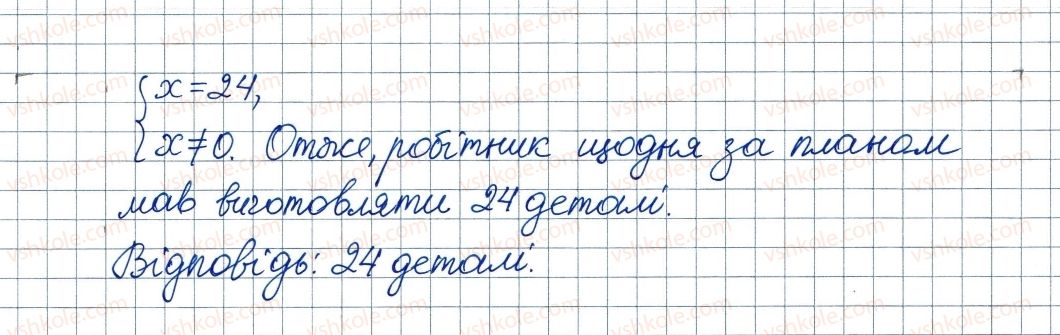 { x = 24,
x ≠ 0. Отже, робітник щодня за планом
мав виготовляти 24 деталі.
Відповідь: 24 деталі.